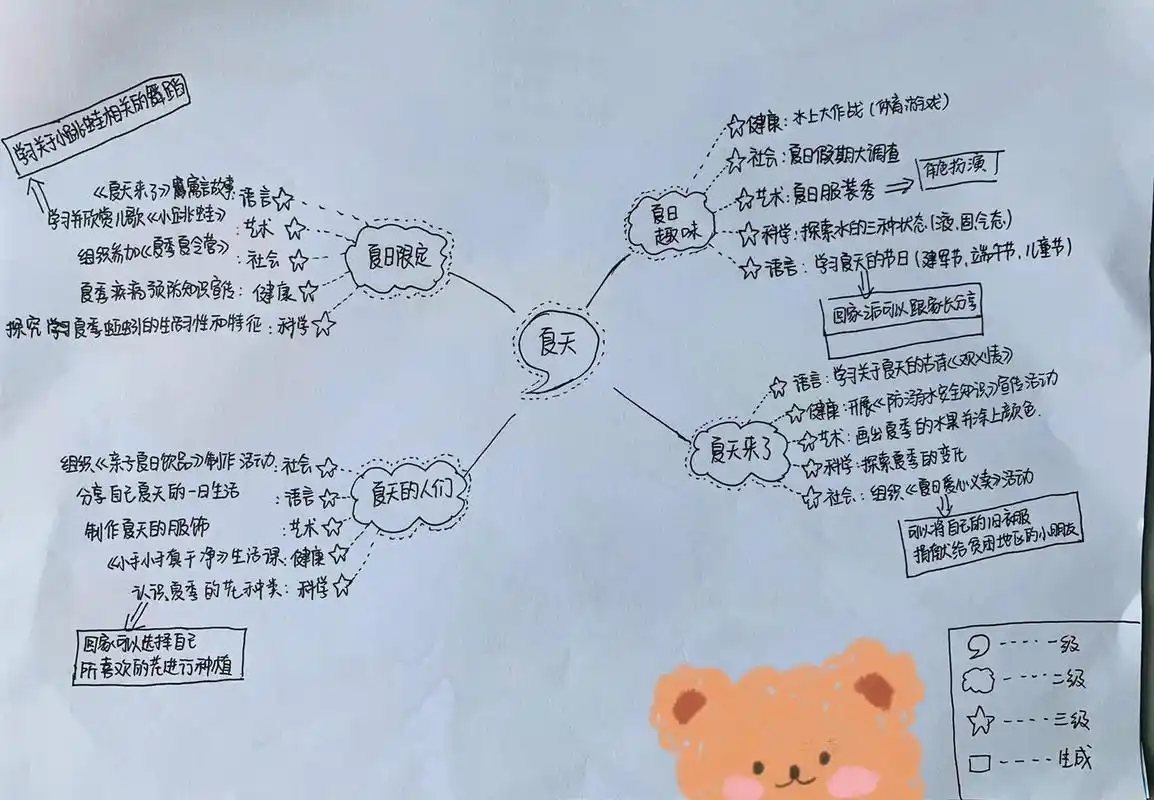 学习关于小跳蛙相关的舞蹈
《夏天来了》寓言故事:语言
学习并欣赏儿歌《小跳蛙》:艺术
组织参加《夏季夏令营》:社会
夏季疾病预防知识宣传:健康
探究学习夏季蚯蚓的生活习性和特征:科学
夏日限定
健康:水上大作战(体育游戏)
社会:夏日假期大调查
艺术:夏日服装秀
角色扮演
科学:探索水的三种状态(液、固、气态)
语言:学习夏天的节日(建军节、端午节、儿童节)
回家后可以跟家长分享
夏日
趣味
夏天
语言:学习关于夏天的古诗《观刈麦》
健康:开展《防溺水安全知识》宣传活动
艺术:画出夏季的水果并涂上颜色.
科学:探索夏季的变化
社会:组织《夏日爱心义卖》活动
可以将自己的旧衣服
捐献给贫困地区的小朋友
夏天来了
组织《亲子夏日饮品》制作活动:社会
分享自己夏天的一日生活:语言
制作夏天的服饰:艺术
《小手小手真干净》生活课:健康
认识夏季的花种类:科学
回家可以选择自己
所喜欢的花进行种植
夏天的人们
一级
二级
三级
生成